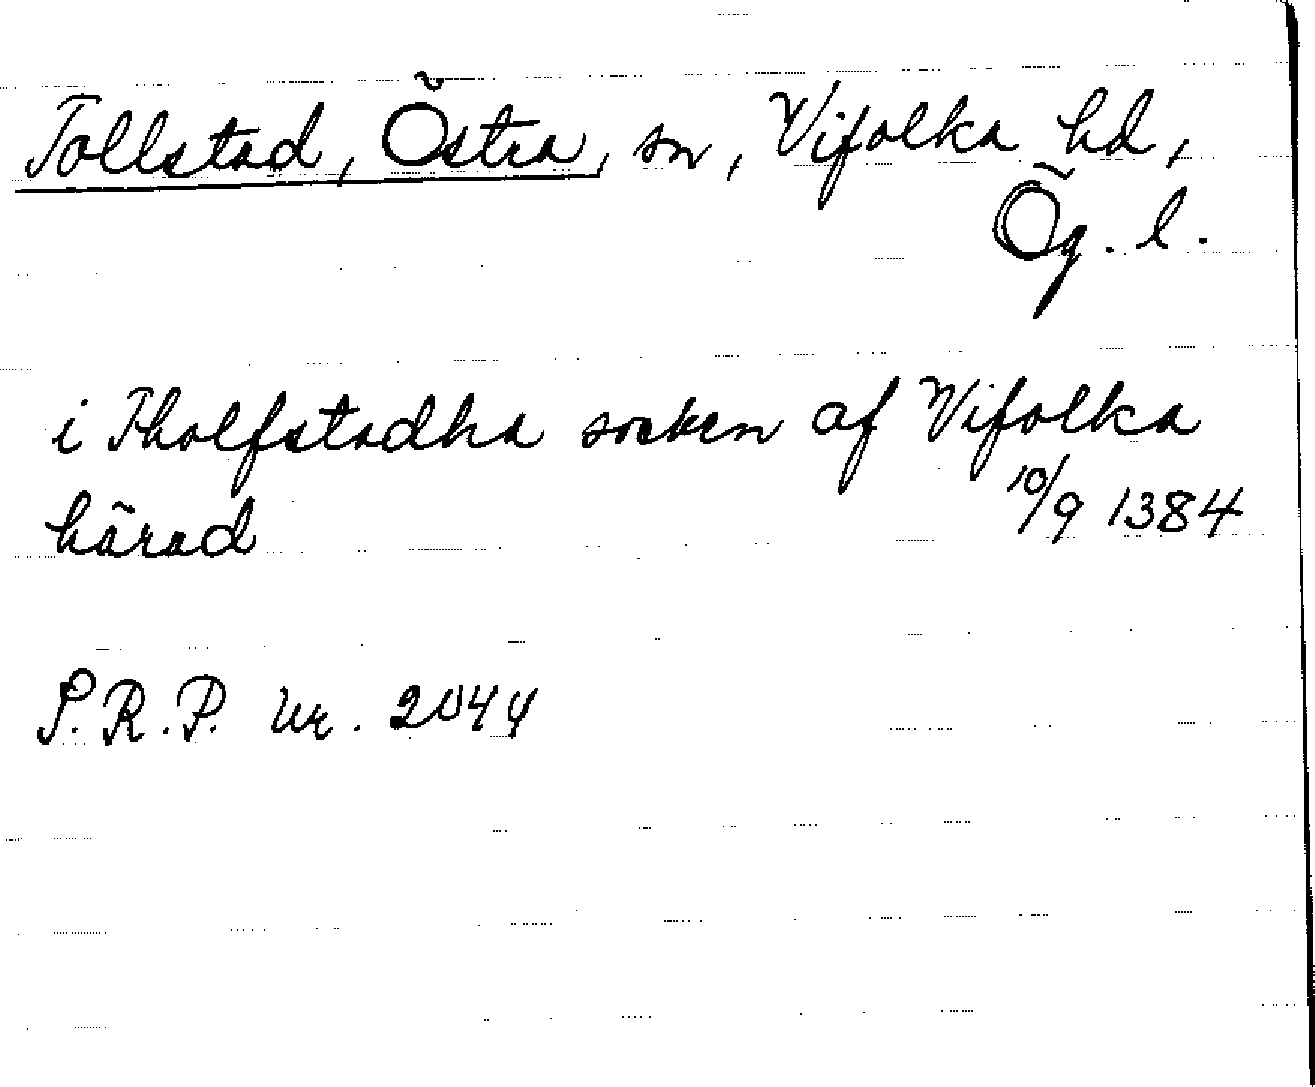 Tollstad, Östra, sn, Vifolka hd,
Ög. l.
i Tholfstadha socken af Vifolka
härad 10/9 1384
S.R.P. nr. 2044